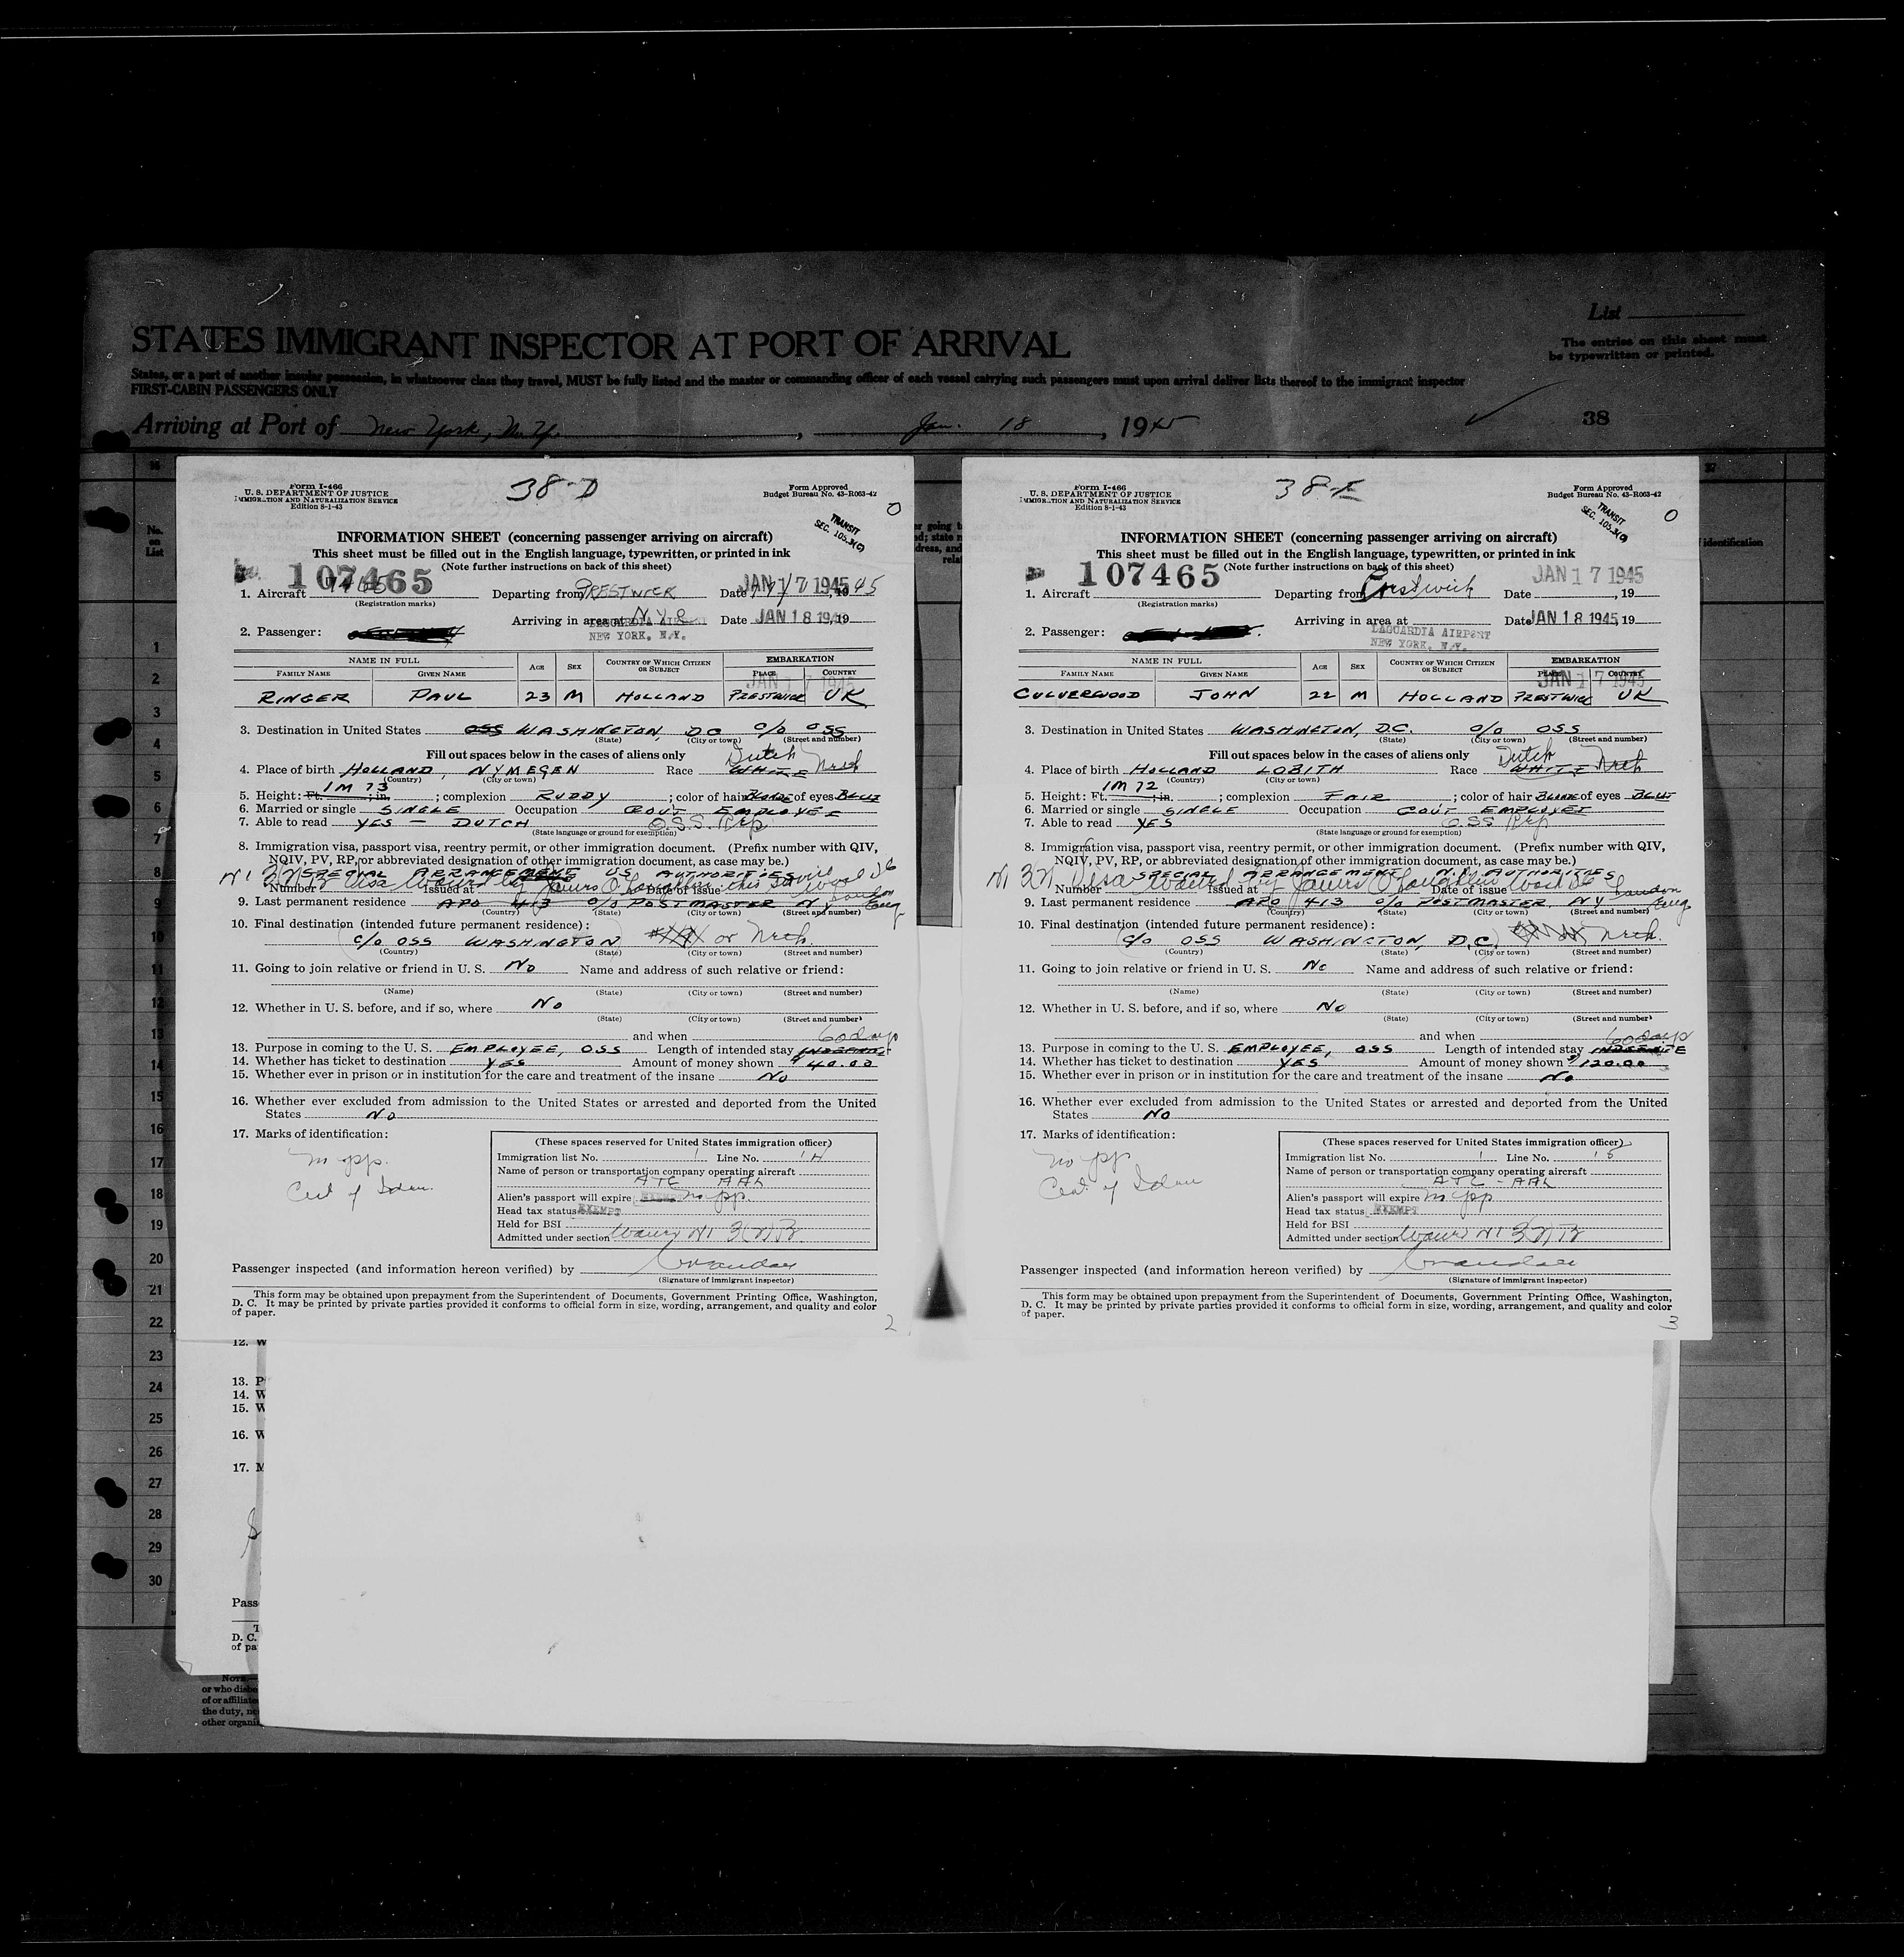 List
The entries on this sheet must
be typewritten or printed.
STATES IMMIGRANT INSPECTOR AT PORT OF ARRIVAL
States, or a port of another insular possession, in whatsoever class they travel, MUST be fully listed and the master or commanding officer of each vessel carrying such passengers must upon arrival deliver lists thereof to the immigrant inspector
FIRST-CABIN PASSENGERS ONLY
Arriving at Port of New York, N.Y., Jan. 18, 1945
38
No.
on
List
1
2
3
4
5
6
7
8
9
10
11
12
13
14
15
16
17
18
19
20
21
22
23
24
25
26
27
28
29
30
Form I-466
U. S. DEPARTMENT OF JUSTICE
IMMIGRATION AND NATURALIZATION SERVICE
Edition 8-1-43
38-D
Form Approved
Budget Bureau No. 43-R063-42
0
TRANSIT
SEC. 105.3(C)
INFORMATION SHEET (concerning passenger arriving on aircraft)
This sheet must be filled out in the English language, typewritten, or printed in ink
(Note further instructions on back of this sheet)
107465
1. Aircraft 7465 Departing from PRESTWICK Date JAN 17 1945
(Registration marks)
Arriving in area at LAGUARDIA AIRPORT Date JAN 18 1945, 19
NEW YORK, N.Y.
2. Passenger:
NAME IN FULL AGE SEX COUNTRY OF WHICH CITIZEN OR SUBJECT EMBARKATION
FAMILY NAME GIVEN NAME PLACE COUNTRY
JAN 17 1945
RINGER PAUL 23 M HOLLAND PRESTWICK UK
3. Destination in United States OSS WASHINGTON, DC c/o OSS
(State) (City or town) (Street and number)
Fill out spaces below in the cases of aliens only
Dutch
4. Place of birth HOLLAND, NYMEGEN Race WHITE Nreh
(Country) (City or town)
1M 73
5. Height: Ft. ; in. ; complexion RUDDY ; color of hair BLONDE of eyes BLUE
6. Married or single SINGLE Occupation GOV'T EMPLOYEE
7. Able to read YES — DUTCH O.S.S. Rep
(State language or ground for exemption)
8. Immigration visa, passport visa, reentry permit, or other immigration document. (Prefix number with QIV,
NQIV, PV, RP, or abbreviated designation of other immigration document, as case may be.)
SPECIAL ARRANGEMENT US AUTHORITIES
Number Visa waived by James O'Loughlin this Service Issued at Date of issue
9. Last permanent residence APO 413 c/o POSTMASTER NY London Eng
(Country) (State) (City or town) (Street and number)
10. Final destination (intended future permanent residence):
c/o OSS WASHINGTON or Nreh.
(Country) (State) (City or town) (Street and number)
11. Going to join relative or friend in U. S. No Name and address of such relative or friend:
(Name) (State) (City or town) (Street and number)
12. Whether in U. S. before, and if so, where No
(State) (City or town) (Street and number)
and when 60 days
13. Purpose in coming to the U. S. EMPLOYEE, OSS Length of intended stay
14. Whether has ticket to destination YES Amount of money shown $40.00
15. Whether ever in prison or in institution for the care and treatment of the insane No
16. Whether ever excluded from admission to the United States or arrested and deported from the United
States No
17. Marks of identification:
no pp.
Cert of Iden.
(These spaces reserved for United States immigration officer)
Immigration list No. 1 Line No. 14
Name of person or transportation company operating aircraft
ATC - AAL
Alien's passport will expire no pp.
Head tax status EXEMPT
Held for BSI
Admitted under section Waived N1 3(2)B
Passenger inspected (and information hereon verified) by
(Signature of immigrant inspector)
This form may be obtained upon prepayment from the Superintendent of Documents, Government Printing Office, Washington,
D. C. It may be printed by private parties provided it conforms to official form in size, wording, arrangement, and quality and color
of paper.
2
Form I-466
U. S. DEPARTMENT OF JUSTICE
IMMIGRATION AND NATURALIZATION SERVICE
Edition 8-1-43
38-E
Form Approved
Budget Bureau No. 43-R063-42
0
TRANSIT
SEC. 105.3(C)
INFORMATION SHEET (concerning passenger arriving on aircraft)
This sheet must be filled out in the English language, typewritten, or printed in ink
(Note further instructions on back of this sheet)
107465
JAN 17 1945
1. Aircraft Departing from Prestwick Date , 19
(Registration marks)
Arriving in area at LAGUARDIA AIRPORT Date JAN 18 1945, 19
NEW YORK, N.Y.
2. Passenger:
NAME IN FULL AGE SEX COUNTRY OF WHICH CITIZEN OR SUBJECT EMBARKATION
FAMILY NAME GIVEN NAME PLACE COUNTRY
JAN 17 1945
CULVERWOOD JOHN 22 M HOLLAND PRESTWICK UK
3. Destination in United States WASHINGTON, D.C. c/o OSS
(State) (City or town) (Street and number)
Fill out spaces below in the cases of aliens only
Dutch
4. Place of birth HOLLAND LOBITH Race WHITE Nreh
(Country) (City or town)
1M 72
5. Height: Ft. ; in. ; complexion FAIR ; color of hair BLONDE of eyes BLUE
6. Married or single SINGLE Occupation GOV'T EMPLOYEE
7. Able to read YES OSS Rep
(State language or ground for exemption)
8. Immigration visa, passport visa, reentry permit, or other immigration document. (Prefix number with QIV,
NQIV, PV, RP, or abbreviated designation of other immigration document, as case may be.)
SPECIAL ARRANGEMENT AUTHORITIES
Number Visa waived by James O'Loughlin Wash DC Issued at Date of issue
9. Last permanent residence APO 413 c/o POSTMASTER, NY London Eng
(Country) (State) (City or town) (Street and number)
10. Final destination (intended future permanent residence):
c/o OSS WASHINGTON, D.C. Nreh.
(Country) (State) (City or town) (Street and number)
11. Going to join relative or friend in U. S. No Name and address of such relative or friend:
(Name) (State) (City or town) (Street and number)
12. Whether in U. S. before, and if so, where No
(State) (City or town) (Street and number)
and when 60 days
13. Purpose in coming to the U. S. EMPLOYEE, OSS Length of intended stay
14. Whether has ticket to destination YES Amount of money shown $120.00
15. Whether ever in prison or in institution for the care and treatment of the insane No
16. Whether ever excluded from admission to the United States or arrested and deported from the United
States No
17. Marks of identification:
no pp
Cert. of Iden
(These spaces reserved for United States immigration officer)
Immigration list No. 1 Line No. 15
Name of person or transportation company operating aircraft
ATC - AAL
Alien's passport will expire no pp
Head tax status EXEMPT
Held for BSI
Admitted under section Waived N1 3(2)B
Passenger inspected (and information hereon verified) by
(Signature of immigrant inspector)
This form may be obtained upon prepayment from the Superintendent of Documents, Government Printing Office, Washington,
D. C. It may be printed by private parties provided it conforms to official form in size, wording, arrangement, and quality and color
of paper.
3
12. W
13. P
14. W
15. W
16. W
17. M
Pass
D. C.
of pa
NOTE.—
or who disbe
of or affiliate
the duty, ne
other organi